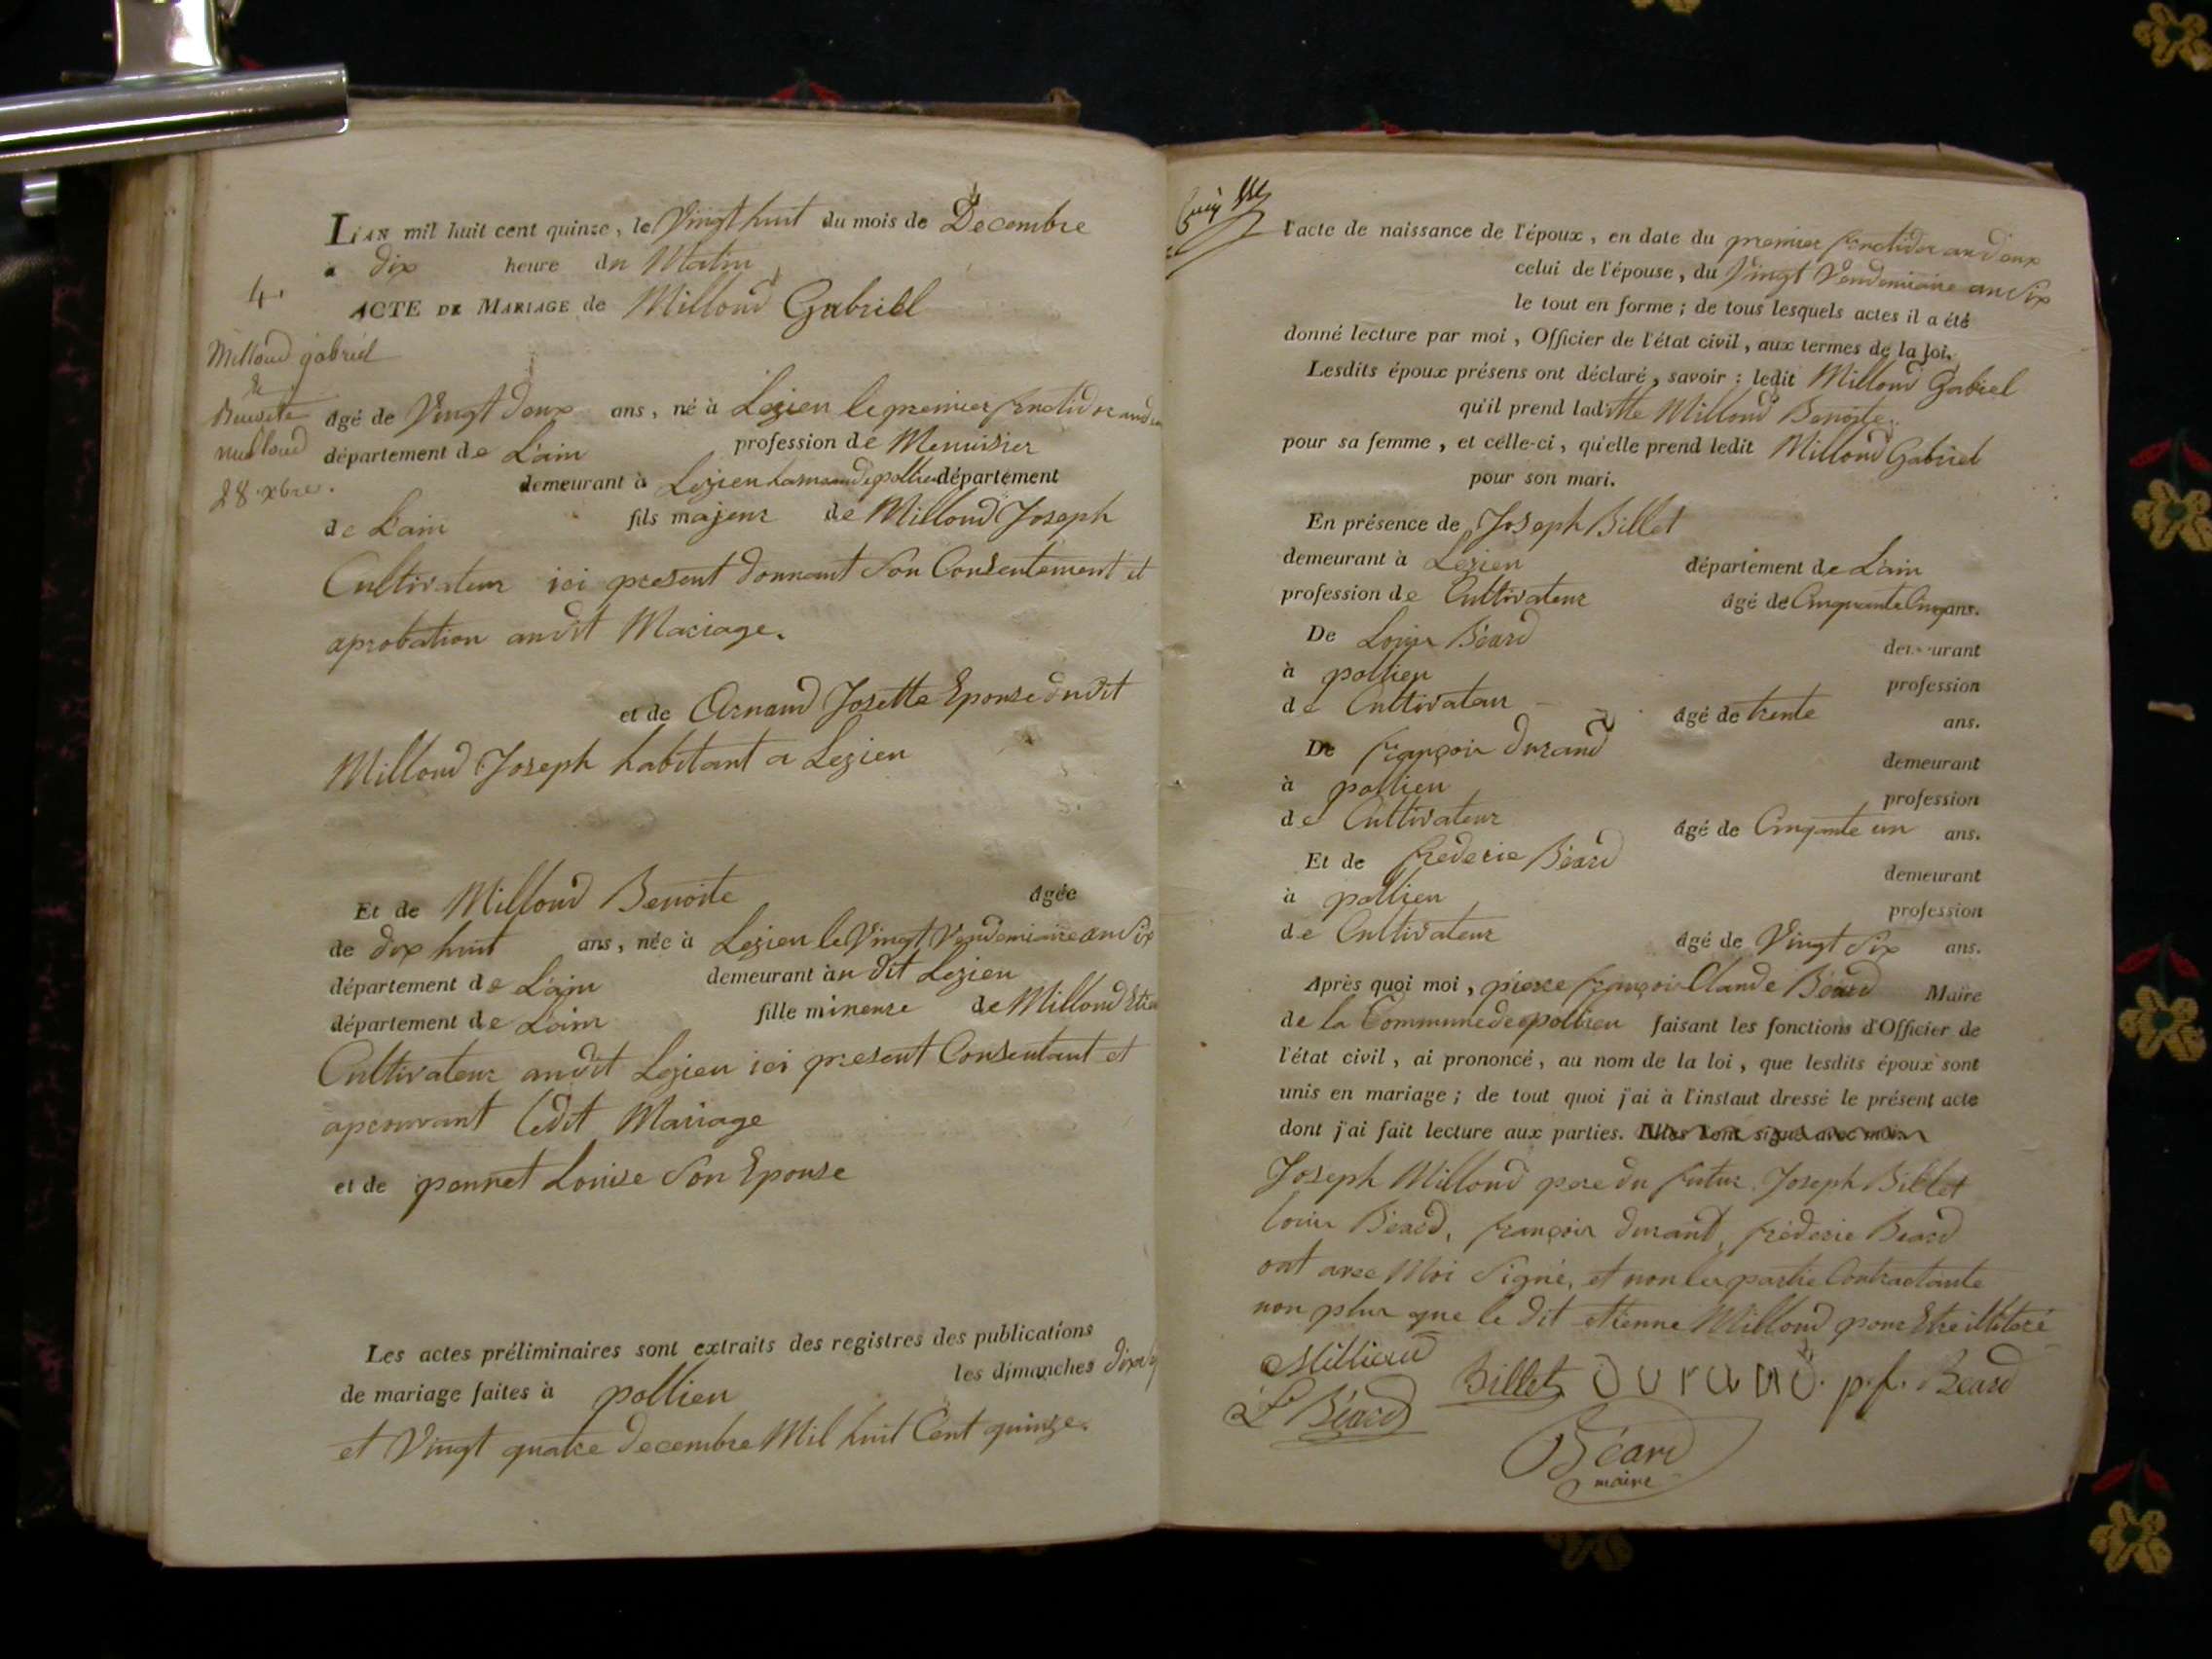 L'AN mil huit cent quinze, le Vingt huit du mois de Decembre
a dix heure du Matin
4.
ACTE DE MARIAGE de Milloud Gabriel
Milloud gabriel
&
Benoite
milloud
28 xbre.
âgé de Vingt deux ans, né à Lezieu le premier fructidor an deux
département de L'ain profession de Menuisier
demeurant à Lezieu hameau de pollieu département
de L'ain fils majeur de Milloud Joseph
Cultivateur ici present donnant Son Consentement et
aprobation audit Mariage.
et de Arnaud Josette Epouse dudit
Milloud Joseph habitant a Lezieu
Et de Milloud Benoite âgée
de dix huit ans, née à Lezieu le Vingt Vendemiaire an Six
département de L'ain demeurant à au dit Lezieu
département de L'ain fille mineure de Milloud
Cultivateur audit Lezieu ici present Consentant et
aprouvant ledit Mariage
et de ponnet Louise Son Epouse
Les actes préliminaires sont extraits des registres des publications
de mariage faites à pollieu les dimanches
et Vingt quatre decembre Mil huit Cent quinze.
l'acte de naissance de l'époux, en date du premier fructidor an deux
celui de l'épouse, du Vingt Vendemiaire an Six
le tout en forme; de tous lesquels actes il a été
donné lecture par moi, Officier de l'état civil, aux termes de la loi.
Lesdits époux présens ont déclaré, savoir: ledit Milloud Gabriel
qu'il prend laditte Milloud Benoite.
pour sa femme, et celle-ci, qu'elle prend ledit Milloud Gabriel
pour son mari.
En présence de Joseph Billet
demeurant à Lezieu département de L'ain
profession de Cultivateur âgé de Cinquante Cinq ans.
De Louis Béard demeurant
à pollieu profession
de Cultivateur âgé de trente ans.
De françois durand demeurant
à pollieu profession
de Cultivateur âgé de Cinqante un ans.
Et de frederic Béard demeurant
à pollieu profession
de Cultivateur âgé de Vingt Six ans.
Après quoi moi, pierre françois Claude Béard Maire
de la Commune de pollieu faisant les fonctions d'Officier de
l'état civil, ai prononcé, au nom de la loi, que lesdits époux sont
unis en mariage; de tout quoi j'ai à l'instant dressé le présent acte
dont j'ai fait lecture aux parties. Elles l'ont signé avec moi.
Joseph Milloud pere du futur, Joseph Billet
louis Béard, françois durant, fréderic Beard
ont avec Moi Signé, et non les partie Contractante
non plus que le dit etienne Milloud pour Etre illiteré
Millioud Billet Durand. p. f. Beard
L Béard
Béard
maire